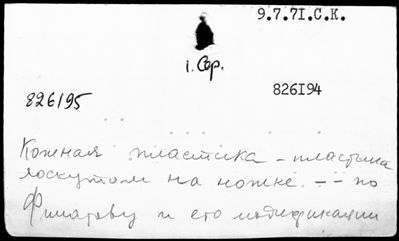 9.7.7I.С.К.
i. Ср.
826195
826I94
Кожная пластика - пластика
лоскутом на ножке. - - по
Филатову и его модификации